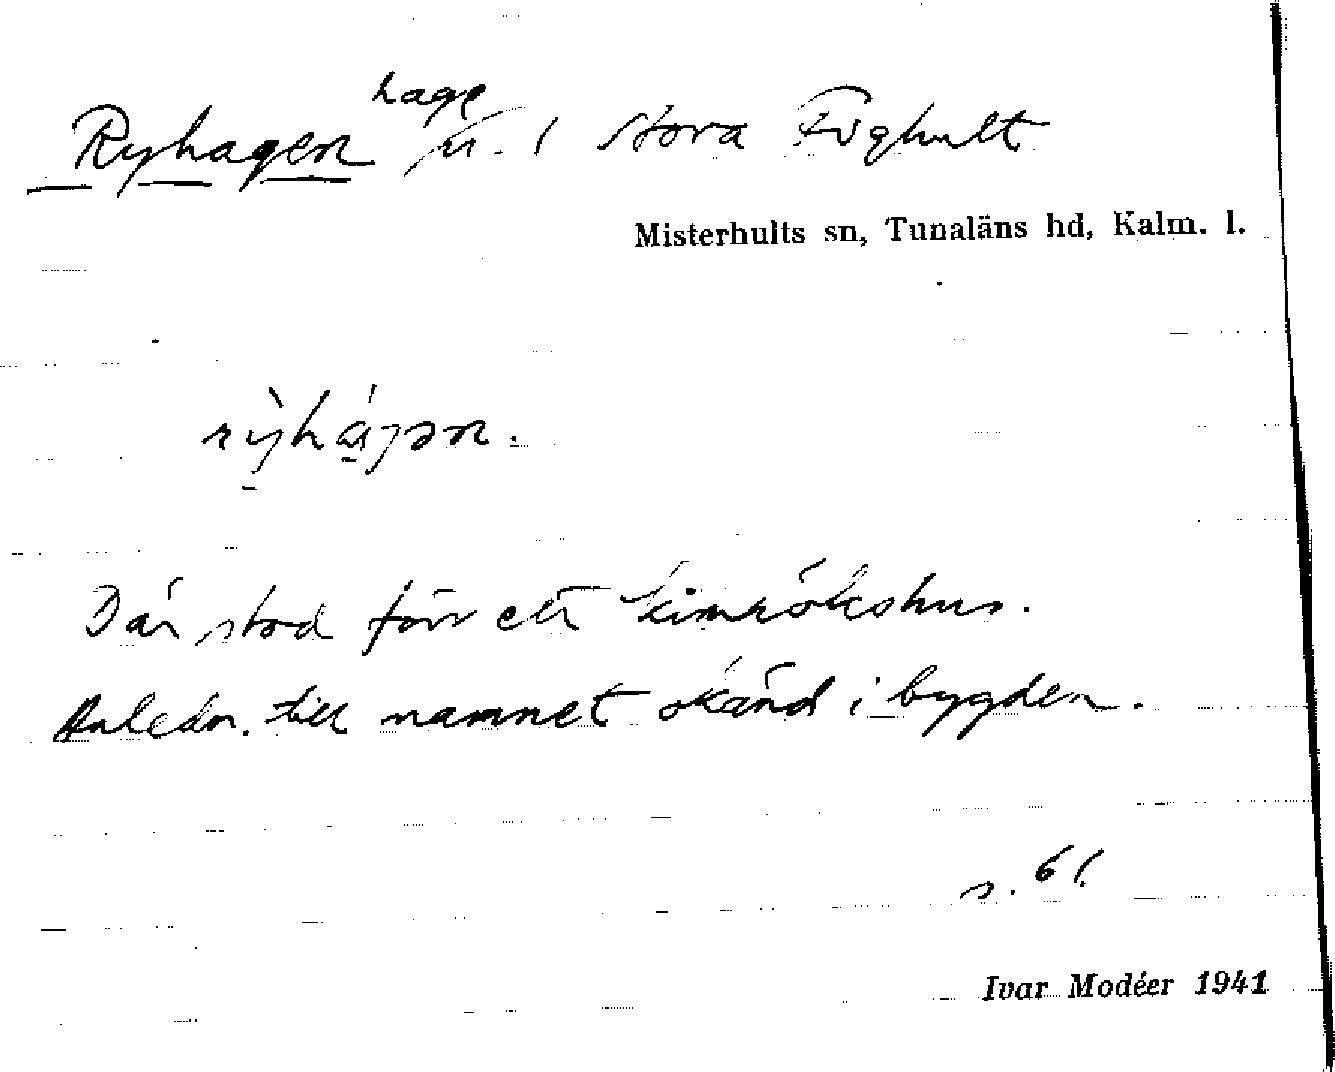 Ryhagen hage u. 1 Stora Fighult
Misterhults sn, Tunaläns hd, Kalm. l.
rỳhágən.
Där stod förr ett kimrökshus.
Anledn. till namnet okänd i bygden.
s. 61.
Ivar Modéer 1941